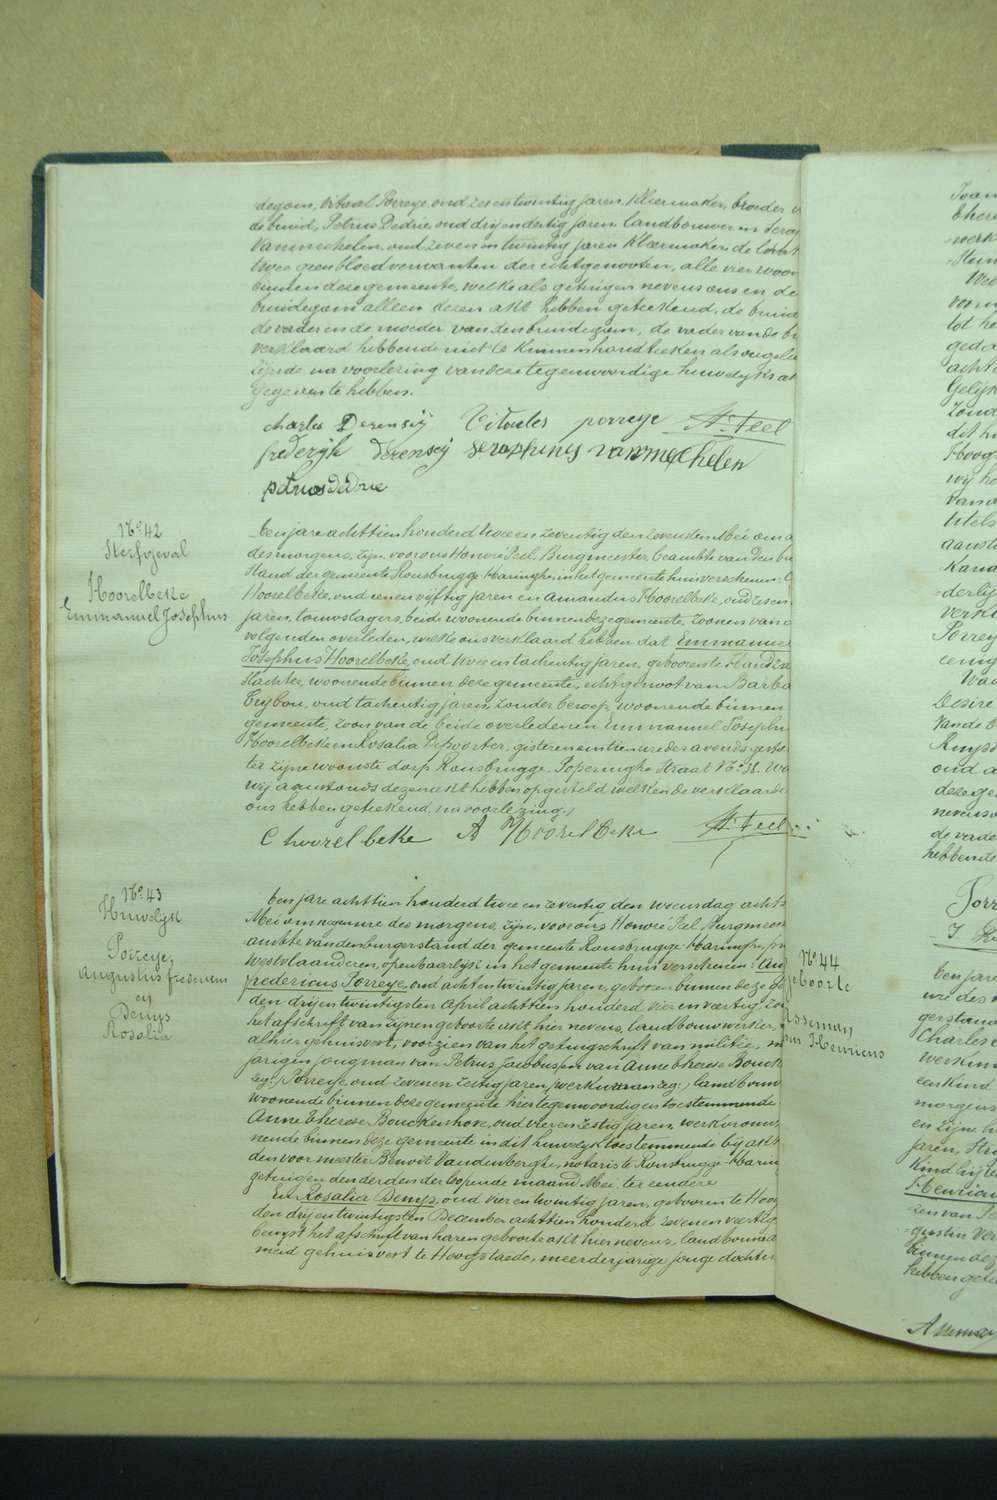 degom, Vitael Porreye, oud zesentwintig jaren, Kleermaker, broeder v
de bruid, Petrus Dedrie, oud drijendertig jaren, landbouwer en Serap
Vanmechelen, oud zevenentwintig jaren Kleermaker, de laatst
twee geen bloedverwanten der echtgenooten, alle vier woon
binnen deze gemeente, welke als getuigen nevens ons en de
bruidegom alleen dezen akt hebben geteekend, de bruid
de vader en de moeder van den bruidegom, de vader van de b
verklaard hebbende niet te kunnen handteeken als ongele
zijnde na voorlezing van deze tegenwoordige huwelijks ak
gegeven te hebben.
charles Derensij Vitales porreye H. Peel
frederyk Derensij seraphinus vanmechelen
petrus dedrie
No 42
Sterfgeval
Hoorelbeke
Emmanuel Josephus
Ten jare achttien honderd twee en zeventig den zevensten Mei om
des morgens, zijn, voor ons Honoré Peel, Burgmeester, beambte van den bu
Stand der gemeente Rousbrugge-Haringhe, in het gemeentehuis verschenen: C
Hoorelbeke, oud eenenvijftig jaren en Amandus Hoorelbeke, oud zesen
jaren, touwslagers, beide woonende binnen deze gemeente, zoonen van
volgenden overleden, welke ons verklaard hebben dat Emmanuel
Josephus Hoorelbeke, oud tweeentachentig jaren, geboren te
woonende binnen deze gemeente, echtgenoot van Barba
Trybou, oud tachentig jaren, zonder beroep, woonende binnen
gemeente, zoon van de beide overledenen Emmanuel Joseph
Hoorelbeke en Rosalia Depoorter, gisteren om tien ure des avonds gest
ter zijne woonste dorp Rousbrugge, Poperinghe Straat No 31. Wa
wij agustonds dezen akt hebben opgesteld welken de verklaard
ons hebben geteekend, na voorlezing./
C hoorelbeke A Hoorelbeke H. Peel
No 43
Huwelijk
Porreye,
Augustus fredericus
en
Denys
Rosalia
Ten jare achttien honderd twee en zeventig den woensdag acht
Mei om negen ure des morgens, zijn, voor ons Honoré Peel, Burgmeest
ambte van den burgerstand der gemeente Rousbrugge-Haringhe, pro
Westvlaanderen, openbaarlijk in het gemeentehuis verschenen: Au
fredericus Porreye, oud achtentwintig jaren, geboren binnen deze ge
den drijentwintigsten April achttien honderd vier en veertig,
het afschrift van zijnen geboorte akt hier nevens, landbouwwerker,
alhier gehuisvest, voorzien van het getuigschrift van militie, m
jarigen jongman van Petrus Jacobus en van Anne Therese Bouck
zeg: Porreye, oud zevenen zestig jaren, werkman zeg: landbouw
woonende binnen deze gemeente hier tegenwoordig en toestemmende
Anne Therese Bouckenhove, oud vierenzestig jaren, werkvrouw
nende binnen deze gemeente in dit huwelijk toestemmende bij akt
den voor meester Benoit Vandenberghe, notaris te Rousbrugge-Haring
getuigen den derden der loopende maand Mei, ter eendere
En Rosalia Denys, oud vier en twintig jaren, geboren te Hoog
den drijentwintigsten December achttien honderd zevenen veertig
bewyst het afschrift van haren geboorte akt hiernevens, landbouw
meid gehuisvest te Hoogstaede, meerderjarige jonge dochter
No 44
Geboorte
Asseman
Henricus
Joan
Chere
werk
vorm
tot he
geda
acht
Gelijk
zond
dit hu
Hoog
wij he
van a
titels
aanst
Kana
derlij
verkl
Porrey
eenig
Desire
Van de B
Ruys
oud a
deze ge
nevens
de vade
hebbende
Porr
Ten jare
ure des
gerstand
Charles
werkman
een kind
morgens
en zijne
jaren,
Kind bij te
Henricus
zen van
gustin Ver
binnen dez
hebben gete
Asseman